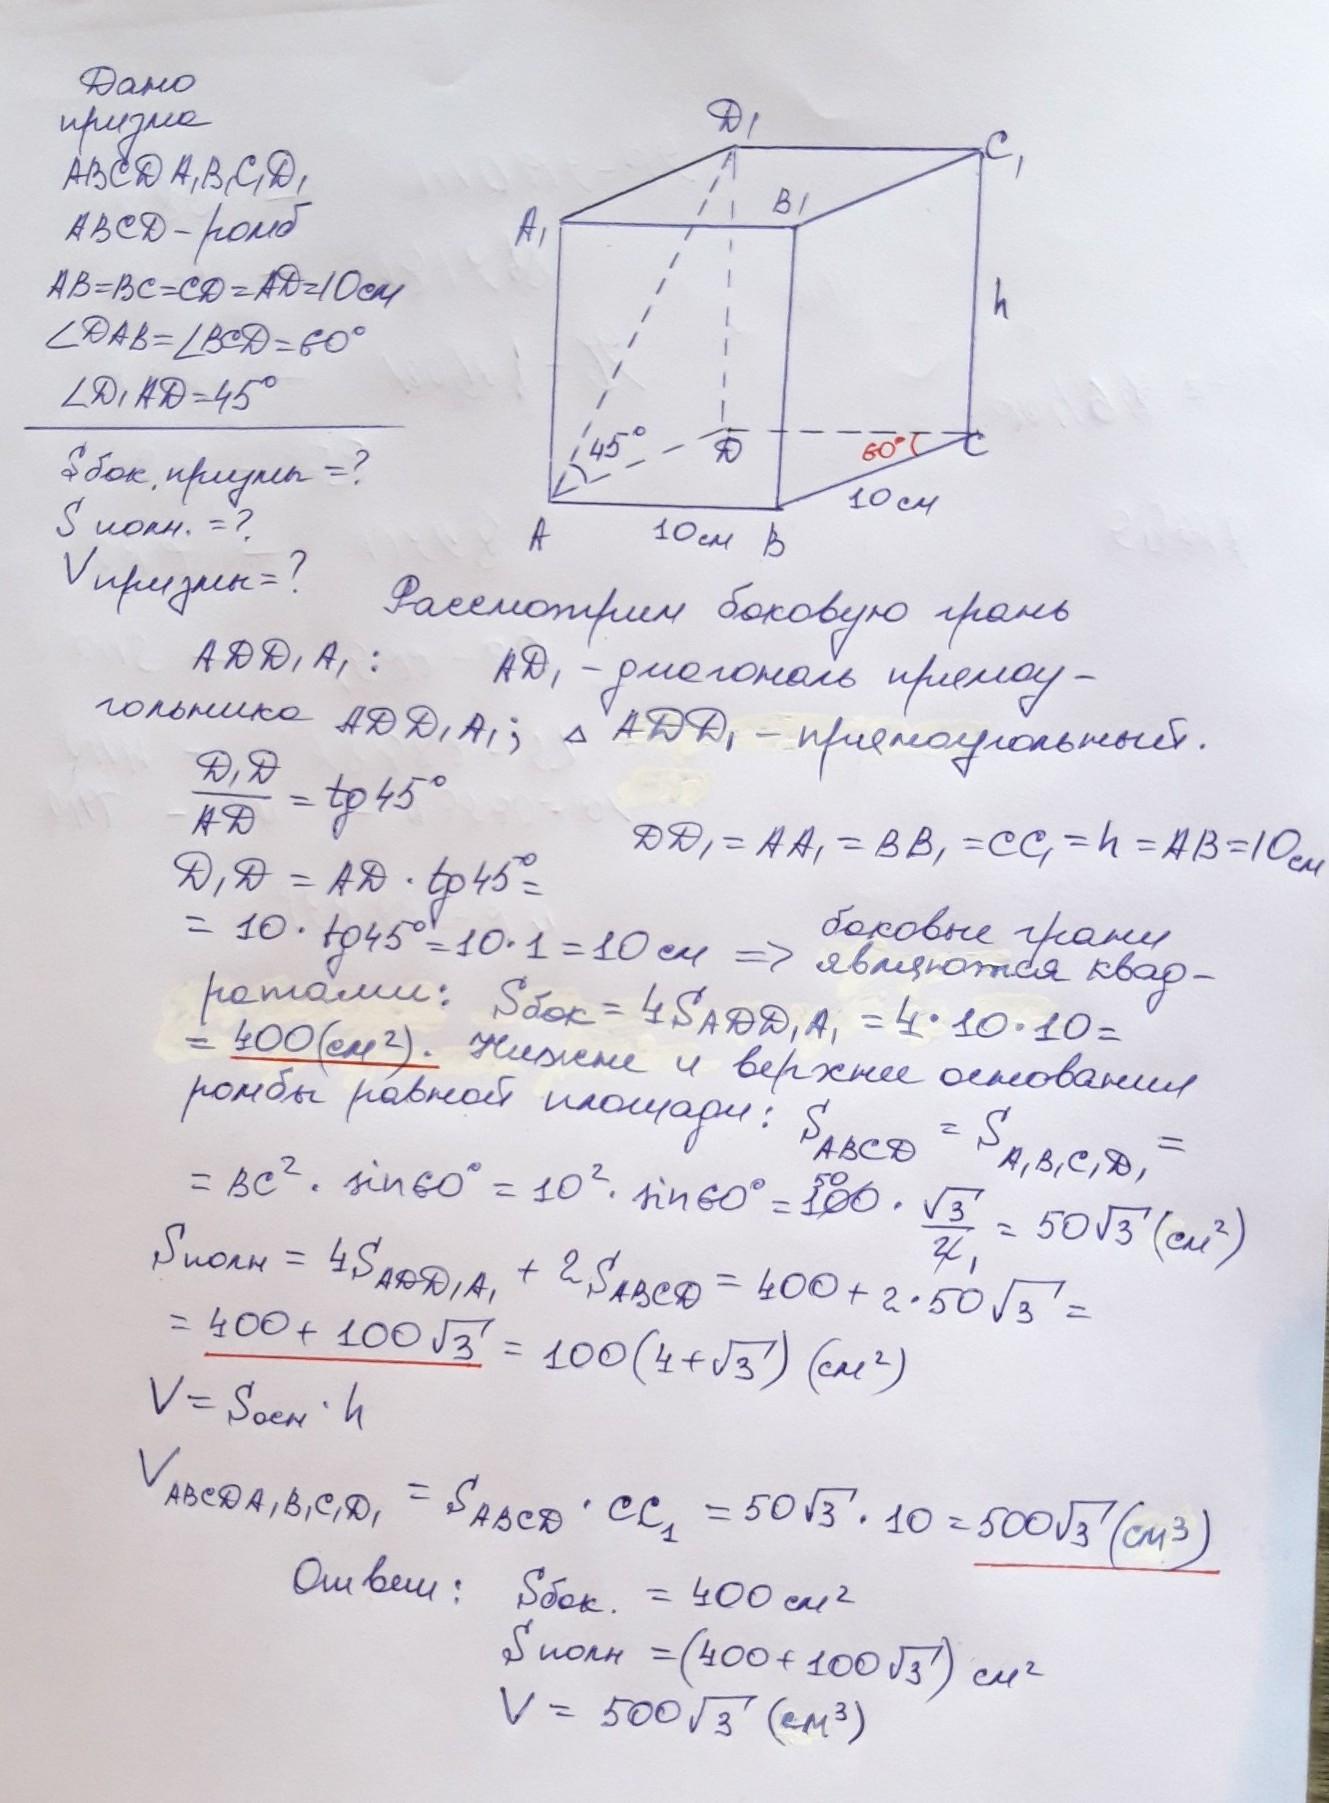 Дано
призма
ABCDA₁B₁C₁D₁
ABCD – ромб
AB=BC=CD=AD=10см
∠DAB=∠BCD=60°
∠D₁AD=45°
Sбок. призмы =?
S полн. =?
V призмы =?
D₁
C₁
B₁
A₁
h
45°
D
60°
C
10см
A
10см
B
Рассмотрим боковую грань
ADD₁A₁: AD₁ – диагональ прямоу-
гольника ADD₁A₁; △ ADD₁ – прямоугольный.
D₁D/AD = tg45°
DD₁ = AA₁ = BB₁ = CC₁ = h = AB = 10см
D₁D = AD · tg45° =
= 10 · tg45° = 10·1 = 10см => боковые грани
являются квад-
ратами: Sбок = 4S ADD₁A₁ = 4·10·10 =
= 400(см²). Нижнее и верхнее основания
ромбы равной площади: S ABCD = S A₁B₁C₁D₁ =
= BC² · sin60° = 10² · sin60° = 100 50 · √3/2 1 = 50√3 (см²)
Sполн = 4S ADD₁A₁ + 2S ABCD = 400 + 2·50√3 =
= 400 + 100√3 = 100(4+√3) (см²)
V = Sосн · h
V ABCDA₁B₁C₁D₁ = S ABCD · CC₁ = 50√3 · 10 = 500√3 (см³)
Ответ: Sбок. = 400 см²
Sполн = (400+100√3) см²
V = 500√3 (см³)